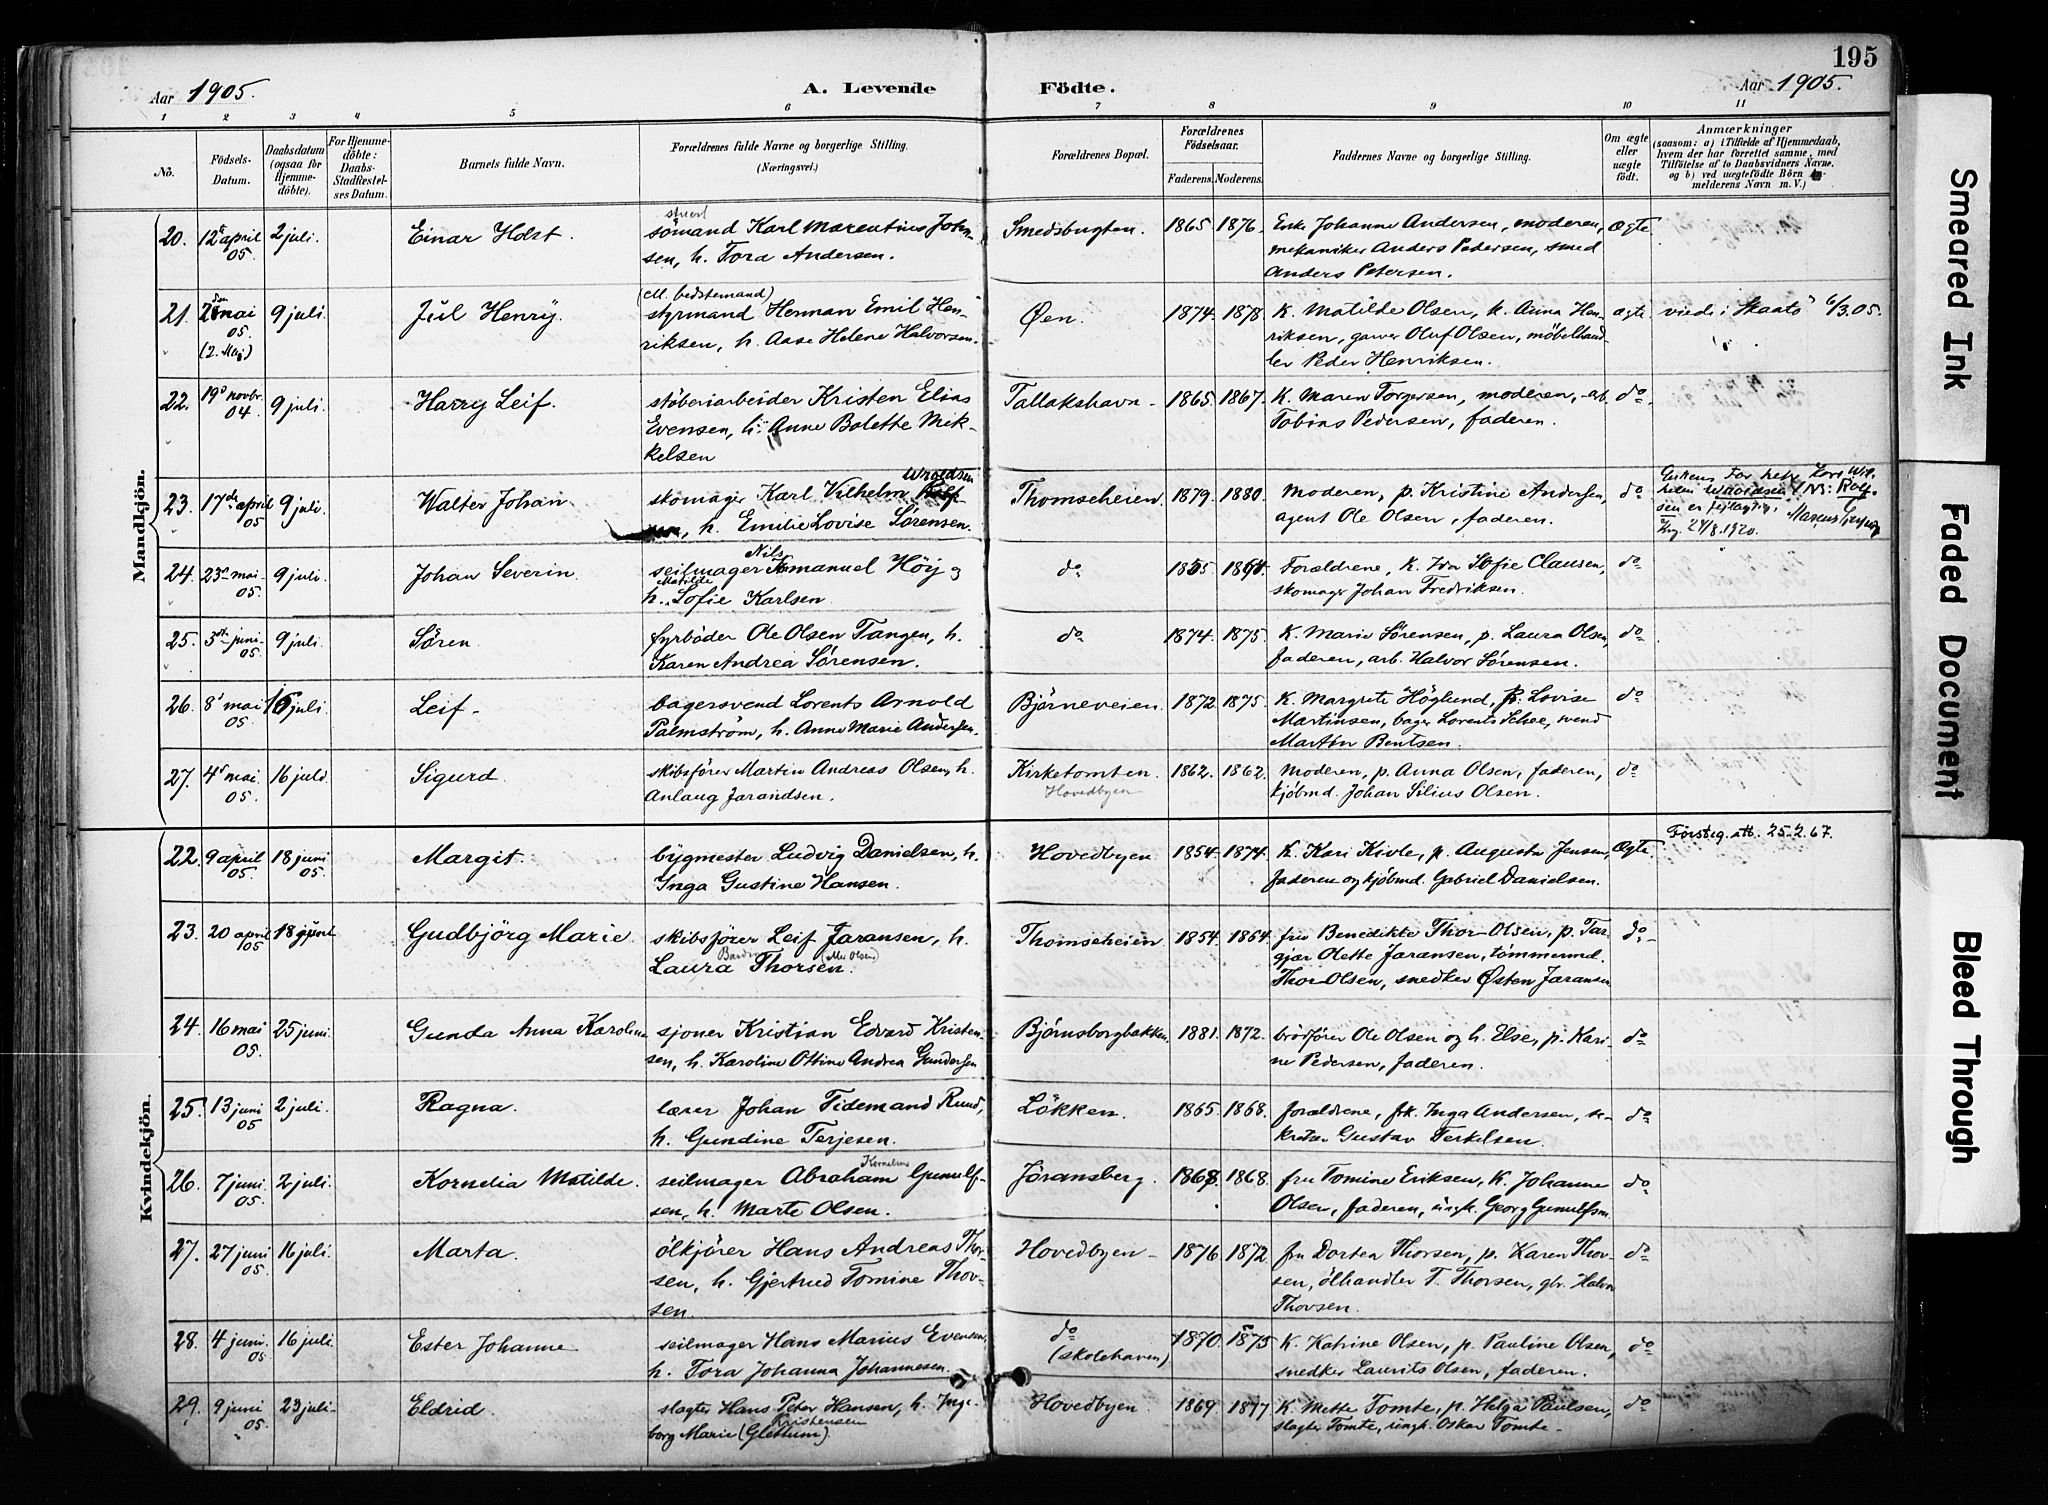 195
Aar 1905. A. Levende Födte. Aar 1905.
1 2 3 4 5 6 7 8 9 10 11
No. Födsels-Datum. Daabsdatum (ogsaa for Hjemmedöbte). For Hjemmedöbte: Daabs-Stadfæstelses Datum. Burnets fulde Navn. Forældrenes fulde Navne og borgerlige Stilling. (Næringsvei.) Forældrenes Bopæl. Forældrenes Födselsaar. Faderens. Moderens. Faddernes Navne og borgerlige Stilling. Om ægte eller uægte födt. Anmærkninger
(saasom: a) i Tilfælde af Hjemmedaab, hvem der har forrettet samme, med Tilföielse af to Daabsvidners Navne, og b) ved uægtefödte Börn Anmelderens Navn m. V.)
Mandkjön.
20. 12 april 05. 2 juli. Einar Holst. sömand Karl Marentius Johnsen, h. Tora Andersen. Smedsbugten. 1865 1876. Enke Johanne Andersen, moderen, mekaniker Anders Pedersen, smed Anders Petersen. ægte
21. 2 mai 05. (2. Maj) 9 juli. Jul Henry. (ell. bedstemand) styrmand Herman Emil Henriksen, h. Aase Helene Halvorsen. Øen. 1874. 1878. K. Matilde Olsen, k. Anna Henriksen, garver Oluf Olsen, möbelhandler Peder Henriksen. ægte viede i Skaatö 6/3.05.
22. 19 novbr. 04. 9 juli. Harry Leif. stöberiarbeider Kristen Elias Evensen, h. Anne Bolette Mikkelsen Tallakshavn 1865. 1867. K. Maren Torgersen, moderen, arb. Tobias Pedersen, faderen. do
23. 17de april 05 9 juli. Walter Johan. skomager Karl Vilhelm Wroldsen, h. Emilie Lovise Sørensen. Thomseheien 1879. 1880. Moderen, p. Kristine Andersen, agent Ole Olsen, faderen. do
24. 23 mai 05. 9 juli. Johan Severin. seilmager Nils Emanuel Höy og h. Matilde Sofie Karlsen. do Forældrene, K. Sofie Clausen, skomager Johan Fredriksen. do
25. 3 juni 05. 9 juli. Sören. fyrböder Ole Olsen Tangen, h. Karen Andrea Sørensen. do 1874. 1875. K. Marie Sørensen, p. Laura Olsen, faderen, arb. Halvor Sørensen. do
26. 8 mai 05. 16 juli. Leif. bagersvend Lorents Arnold Palmström, h. Anne Marie Andersen. Björneveien. 1872. 1875. K. Margrete Höglund, p. Lovise Martinsen, bager Lorents, svend Martin Bentsen. do
27. 4 mai 05. 16 juli. Sigurd. skibsfører Martin Andreas Olsen, h. Anlaug Jarandsen. Kirketomten. Hovedbyen 1862. 1862. Moderen, p. Anna Olsen, faderen, kjöbmd. Johan Silius Olsen. do
Kvindekjön.
22. 9 april 05. 18 juni 05. Margit. bygmester Ludvig Danielsen, h. Inga Gustine Hansen. Hovedbyen 1854. 1874. K. Kari Kivle, p. Augusta Jensen, faderen og kjöbmd. Gabriel Danielsen. Ægte Førsteg. att. 25-2.67.
23. 20 april 05 18 juni Gudbjörg Marie. skibsfører Leif Jaransen, h. Laura Thorsen. Thomseheien 1854. 1864. fru Benedikte Thor-Olsen, p. Targjær Olette Jaransen, tömmermd. Thor Olsen, snedker Østen Jaransen do.
24. 16 mai 05. 25 juni. Gunda Anna Karoline sjöner Kristian Edvard Kristensen, h. Karoline Ottine Andrea Gundersen Björnsborgbakken. 1881. 1872. brödfører Ole Olsen og h. Else, p. Karine Pedersen, faderen. do
25. 13 juni 05 2 juli. Ragna. lærer Johan Tidemand Ruud, h. Gundine Terjesen. Løkken. 1865. 1868. forældrene, frk. Inga Andersen, sekretær Gustav Terkelsen. do
26. 7 juni 05. 2 juli. Kornelia Matilde. seilmager Abraham Kornelius Gunulfsen, h. Marte Olsen. Jøransberg. 1868. 1868. fru Tomine Eriksen, K. Johanne Olsen, faderen, ungk. Georg Gunulfsen. do
27. 27 juni 05. 16 juli. Marta. ölkjører Hans Andreas Thorsen, h. Gjertrud Tomine Thovsen. Hovedbyen 1876. 1872. fru Dortea Thorsen, p. Karen Thovsen, ölhandler T. Thorsen, gbr. Halvor Thovsen. do
28. 4 juni 05 16 juli. Ester Johanne seilmager Hans Marius Evensen, h. Tora Johanna Johannesen. do (skolehaven) 1870. 1875 K. Katrine Olsen, p. Pauline Olsen, snedker Laurits Olsen, faderen. do
29. 9 juni 05. 23 juli. Eldrid. slagter Hans Peter Hansen, h. Ingeborg Marie Kristensen (Glettum). Hovedbyen. 1869. 1877 K. Mette Tomte, p. Helga Paulsen, slagter Tomte, ungk. Oskar Tomte. do
Smeared Ink
Faded Document
Bleed Through